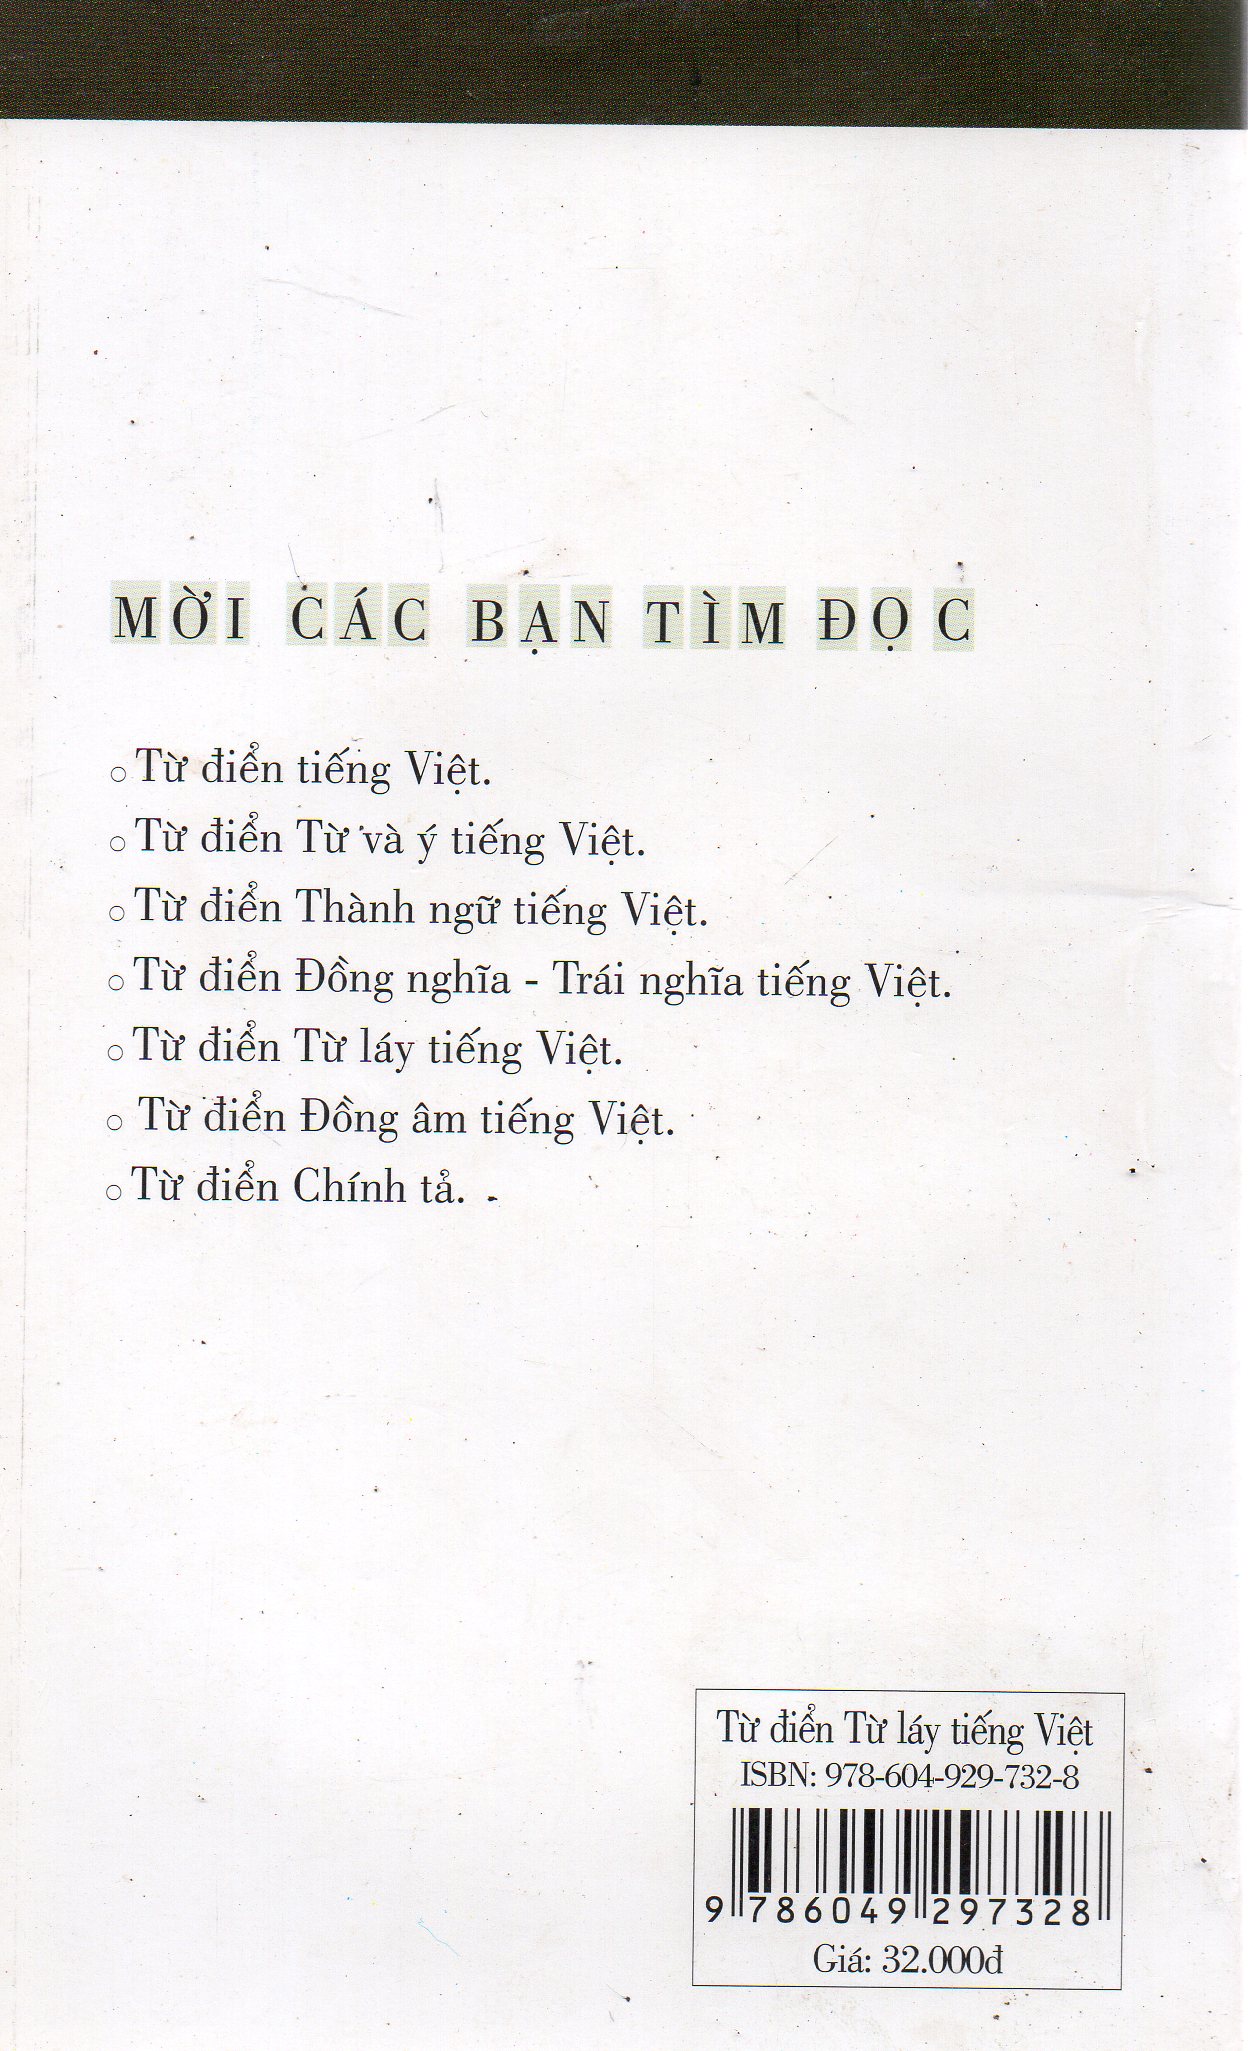 MỜI CÁC BẠN TÌM ĐỌC
○ Từ điển tiếng Việt.
○ Từ điển Từ và ý tiếng Việt.
○ Từ điển Thành ngữ tiếng Việt.
○ Từ điển Đồng nghĩa - Trái nghĩa tiếng Việt.
○ Từ điển Từ láy tiếng Việt.
○ Từ điển Đồng âm tiếng Việt.
○ Từ điển Chính tả.
Từ điển Từ láy tiếng Việt
ISBN: 978-604-929-732-8
9 786049 297328
Giá: 32.000đ